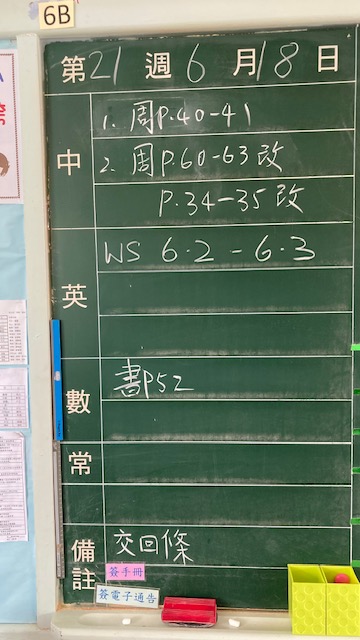 6B
第21週6月18日
中
1. 周P.40-41
2. 周P.60-63改
P.34-35改
英
WS 6.2 - 6.3
數
書P52
常
備註
交回條
簽手冊
簽電子通告